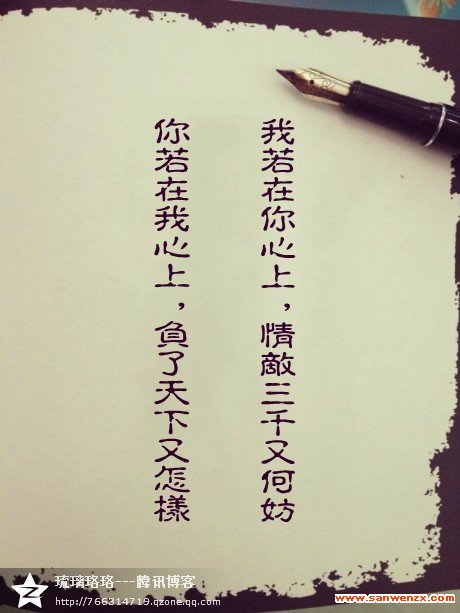 我若在你心上，情敵三千又何妨
你若在我心上，負了天下又怎樣
琉璃珞珞---腾讯博客
http://766314719.qzone.qq.com
www.sanwenzx.com